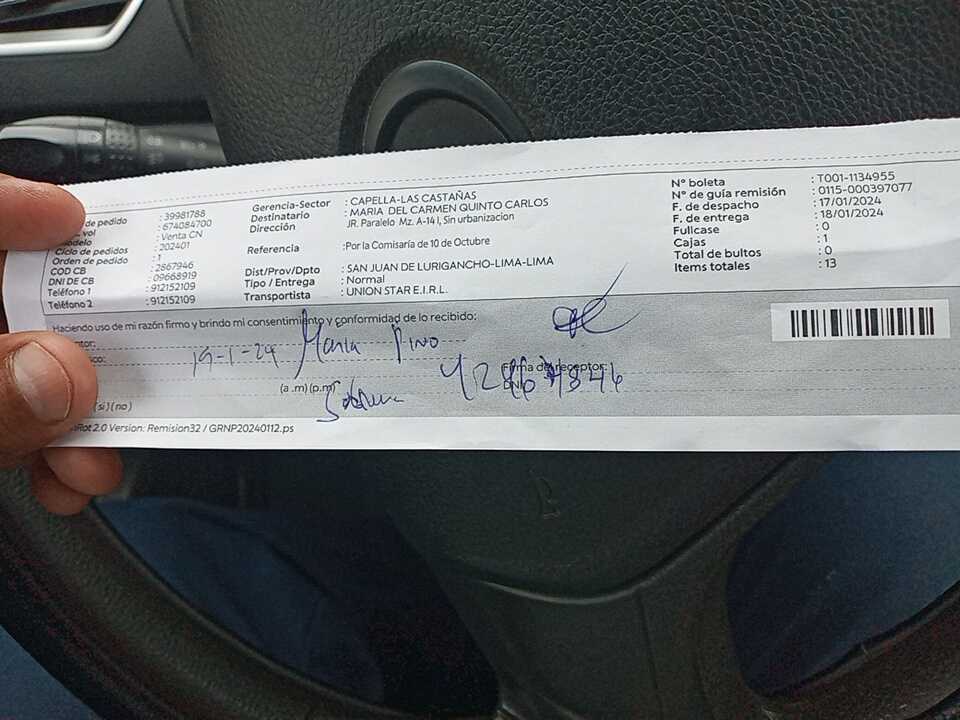 de pedido : 39981788
vol : 674084700
: Venta CN
Ciclo de pedidos : 202401
Orden de pedido : 1
COD CB : 2867946
DNI DE CB : 09668919
Teléfono 1 : 912152109
Teléfono 2 : 912152109
Gerencia-Sector : CAPELLA-LAS CASTAÑAS
Destinatario : MARIA DEL CARMEN QUINTO CARLOS
Dirección JR. Paralelo Mz. A-14 I, Sin urbanizacion
Referencia :Por la Comisaría de 10 de Octubre
Dist/Prov/Dpto : SAN JUAN DE LURIGANCHO-LIMA-LIMA
Tipo / Entrega : Normal
Transportista : UNION STAR E.I.R.L.
N° boleta : T001-1134955
N° de guía remisión : 0115-000397077
F. de despacho : 17/01/2024
F. de entrega : 18/01/2024
Fullcase : 0
Cajas : 1
Total de bultos : 0
Items totales : 13
Haciendo uso de mi razón firmo y brindo mi consentimiento y conformidad de lo recibido:
19-1-24 Maria Pino
Firma de receptor:
(a .m) (p.m)
DNI
(si) (no)
2.0 Version: Remision32 / GRNP20240112.ps